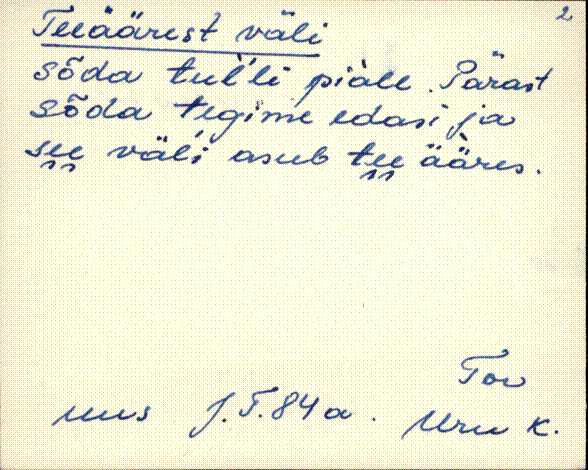 2
Teeäärest väli
sõda tul'li piäle. Pärast
sõda tegime edasi ja
see väli asub tee ääres.
Tor
uus J.T. 84 a. Uru k.